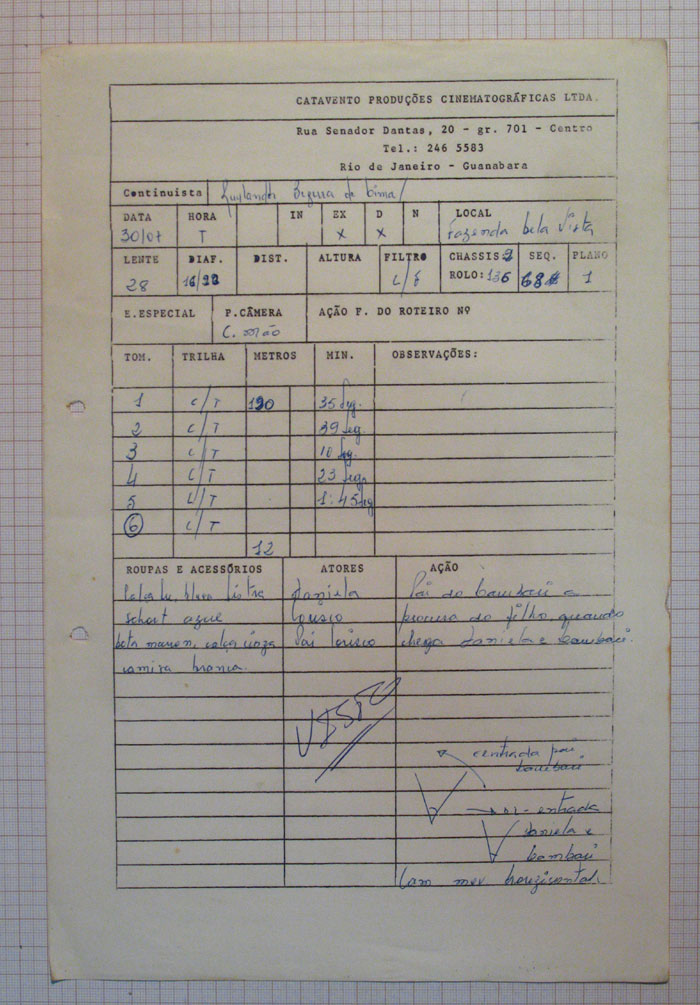 CATAVENTO PRODUÇÕES CINEMATOGRÁFICAS LTDA.
Rua Senador Dantas, 20 - gr. 701 - Centro
Tel.: 246 5583
Rio de Janeiro - Guanabara
Continuista
DATA HORA IN EX D N LOCAL
30/07 T X X Fazenda bela Vista
LENTE DIAF. DIST. ALTURA FILTRO CHASSIS: SEQ. PLANO
28 16/22 ROLO: 136 68 1
E.ESPECIAL P.CÂMERA AÇÃO F. DO ROTEIRO Nº
C. mão
TOM. TRILHA METROS MIN. OBSERVAÇÕES:
1 C/T 35 seg.
2 C/T 39 seg.
3 C/T 10 seg.
4 C/T 23 seg.
5 C/T 1:45 seg
6 C/T
12
ROUPAS E ACESSÓRIOS ATORES AÇÃO
blusa listra daniela Pai do bambuí a
short azul procura do filho, quando
bota marron, calça cinza Pai chega daniela e bambuí.
camisa branca.
entrada pai
bambuí
entrada
daniela e
bambuí
Cam mov horizontal.